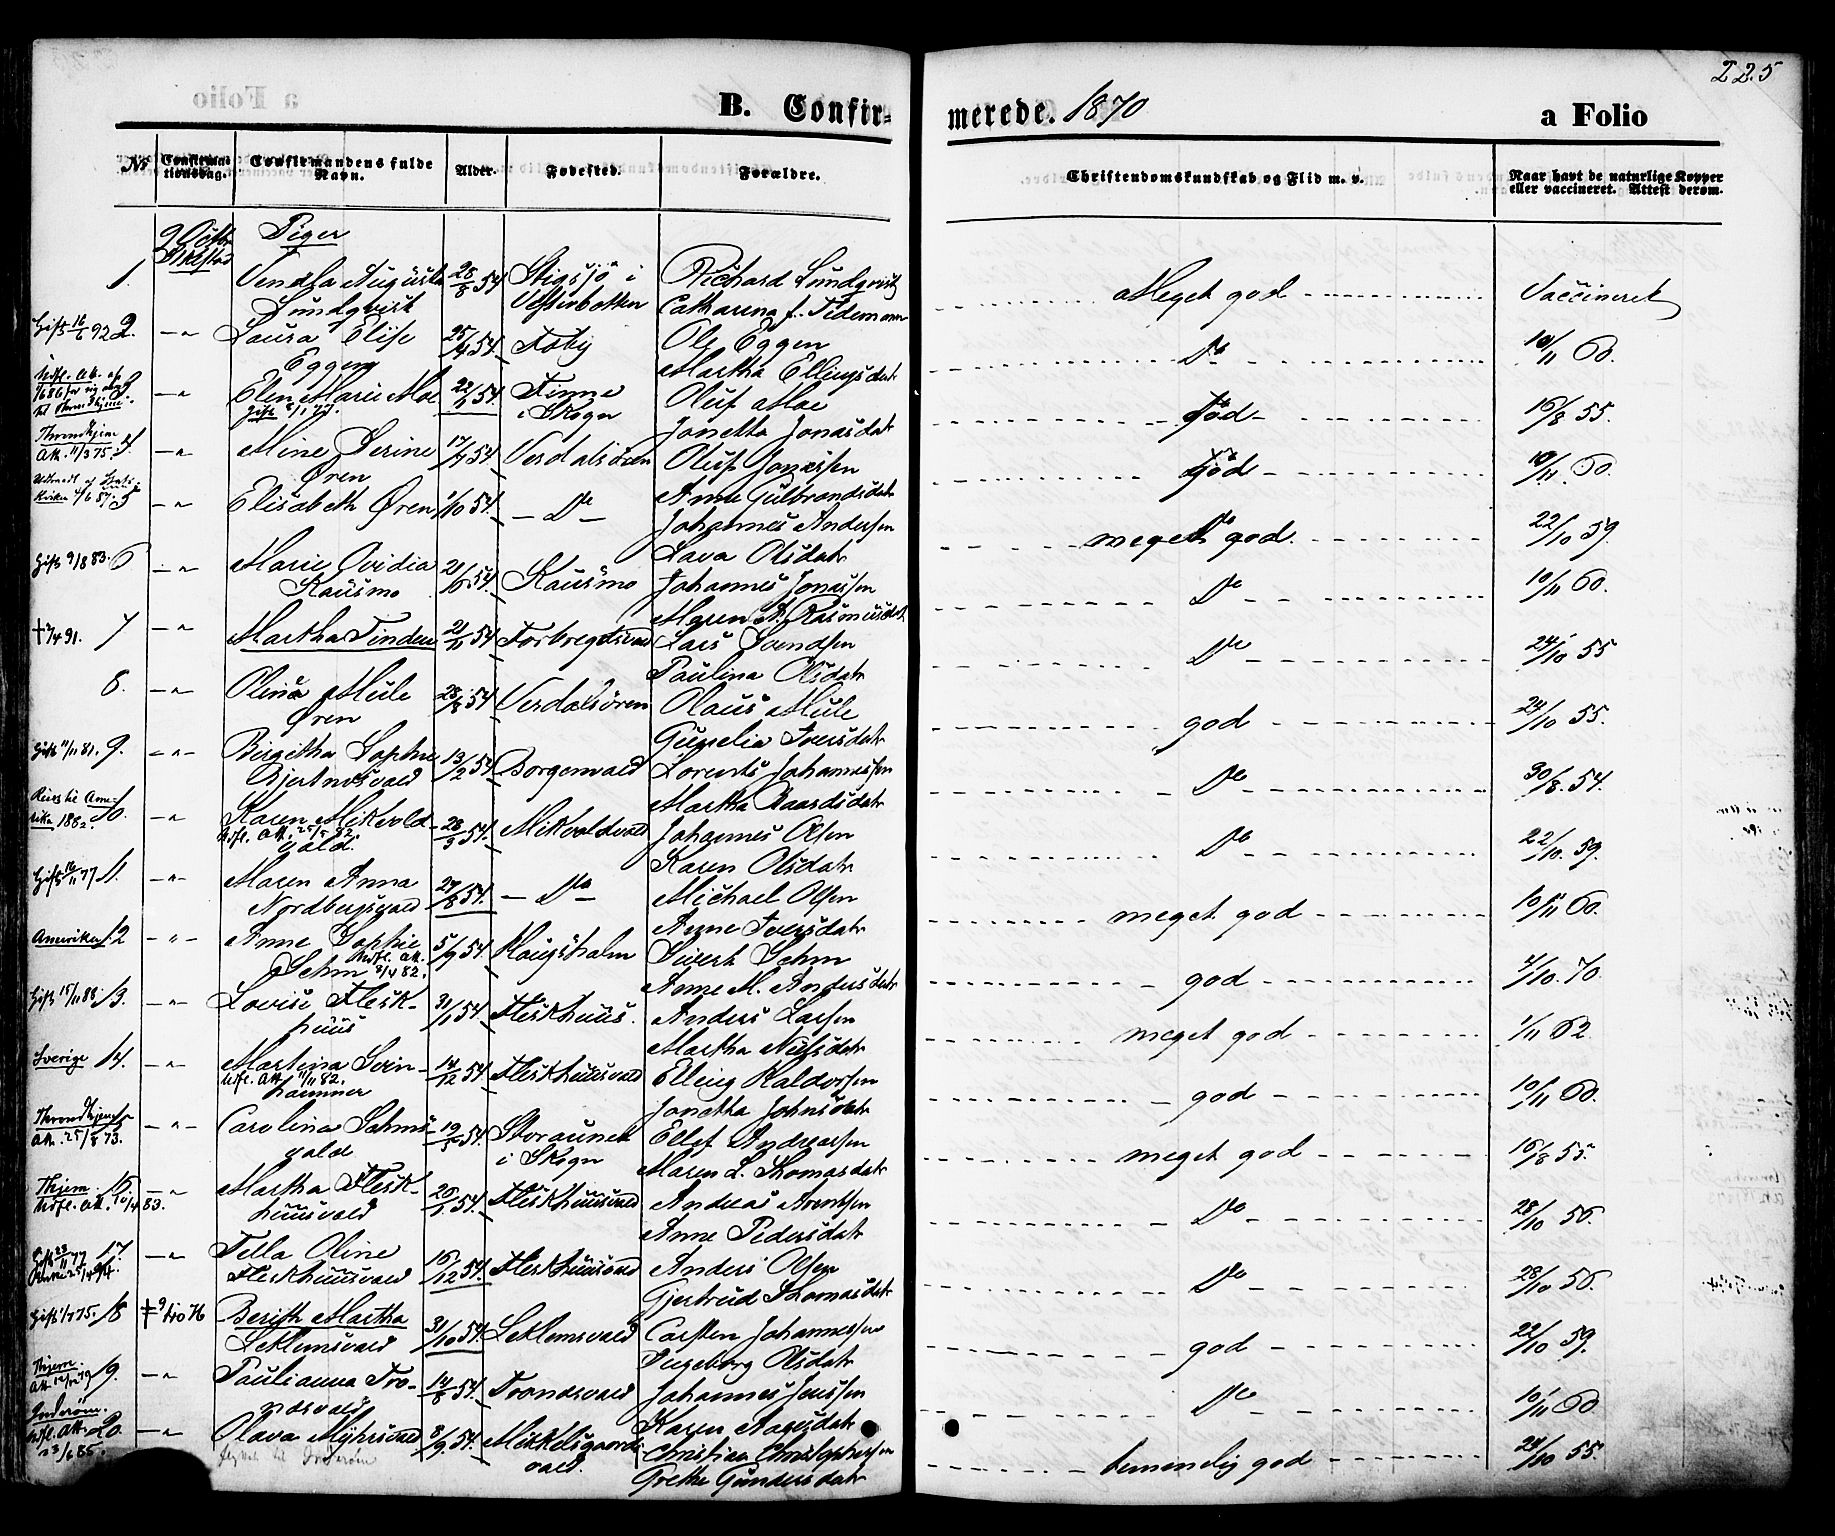 225
a Folio
B. Confir-
merede. 1870
a Folio
Nr
Confirmationsdag.
Confirmandens fulde Navn.
Alder.
Fødested.
Forældre.
Christendomskundskab og Flid m. v.
Naar havt de naturlige Kopper eller vaccineret. Attest derom.
Piger
1. Lundqvist 28/8 54 Stigsjö i Richard Lundqvist
Catharina f. Tidemann
Meget god Vaccineret
Gift 16/6 92 2. -„- Laura Elise Eggen 25/4 54 Ole Eggen
Martha Ellingsdatr
Do 10/11 60.
3 -„- Elen Marie Moe 54 Finne i Skogn Oluf Moe
Gift
Jonetta Jonasdatr
god 16/8 55.
Throndhjem Att. 11/3 75 4 -„- Mine Serine Øren 17/7 54 Verdalsøren Oluf Jonassen
Anne Gulbrandsdatr
god 10/11 60.
5 -„- Elisabeth Øren 1/10 54. - Do - Johannes Andersen
Lava Olsdatr
meget god. 22/10 59.
Gift 9/8 83. 6 -„- Marie Ovidia Hausmo 54 Hausmo Johannes Jonassen
Maren A. Rasmusdat
Do 10/11 60.
† 7/4 91. 7 -„- Martha Tinden 54 Forbregdsvald Lars Svendsen
Paulina Olsdatr
Do 24/10 55
8. -„- Olina Mule Øren 23/8 54 Verdalsøren Olaus Mule
Iversdatr
god 24/10 55.
Gift 11/11 81. 9. -„- Birgitha Sophie 13/2 54 Borgenvald Lorents Johannessen
Martha Baardsdatr
Do 30/8 54.
Reist til Amerika 1882. 10. -„- Karen Mikvoldvald. 28/3 54. Mikvoldvald Johannes Olsen
Udfl. Att. 25/5 82.
Karen Olsdatr
Do 22/10. 59.
Gift 16/11 77 11. -„- Maren Anna Nordbergsvald 27/8 54. - Do - Michael Olsen
Anne Iversdatr
meget god 10/11 60.
Amerika 12 -„- Anne Sophie Sehm 5/9 54. Haugsholm Sivert Sehm
Udfl. Att. 8/4 82.
Anne M. Andersdatr
god 4/10. 70.
Gift 15/11 88 13. -„- Lovise Fleskhuus 31/1 54 Fleskhuus. Anders Larsen
Martha Nilsdatr
meget god 1/11 62
Sverige 14. -„- Martina Svinhammer 14/12 54 Fleskhuusvald Elling Haldorsen
Udfl. Att. 11/11 82.
Jonetha Johnsdatr
god 10/11 60.
Throndhjem Att. 25/8 73. 15 -„- Carolina 19/5 54. i Skogn Ellef Andreassen
Maren L. Thomasdatr
meget god 16/8 55.
Thjem. Udfl. Att. 10/4 83. 16. -„- Martha Fleskhuusvald 20/1 54. Fleskhuusvald Andreas Arentsen
Anne Pedersdatr
Do 28/10 56.
17. -„- Oline Fleskhuusvald 16/12 54. Fleskhuusvald Anders Olsen
Gjertrud Thomasdatr
Do 28/10 56.
Gift 1/7 75. 18 Berith Martha Leklemsvald 31/10 54. Leklemsvald Carsten Johannessen
Ingeborg Olsdatr
god 22/10 59.
Thjem. 19. -„- Paulianna Tronæsvald 14/8 54. Tronæsvald Johannes Jenssen
Karen Aagesdatr
Do 10/11 60
Inderøen. Udfl. Att. 23/6 85. 20. -„- Olava Myhrsvald 8/9 54. Mikkelsgaardsvald. Christian Christophersen
Grethe Gundersdatr
temmelig god 24/10 55.